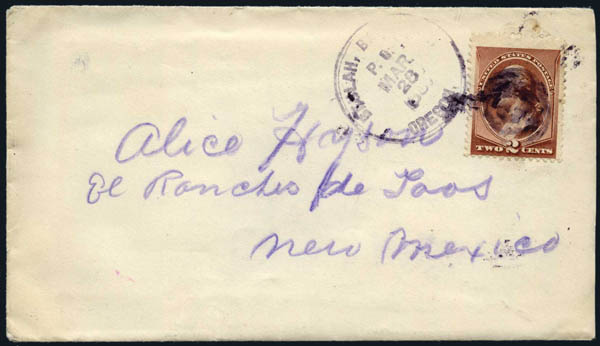 P. O.
MAR
28
OREGON
UNITED STATES POSTAGE
TWO 2 CENTS
Alice
El Rancho de Taos
New Mexico